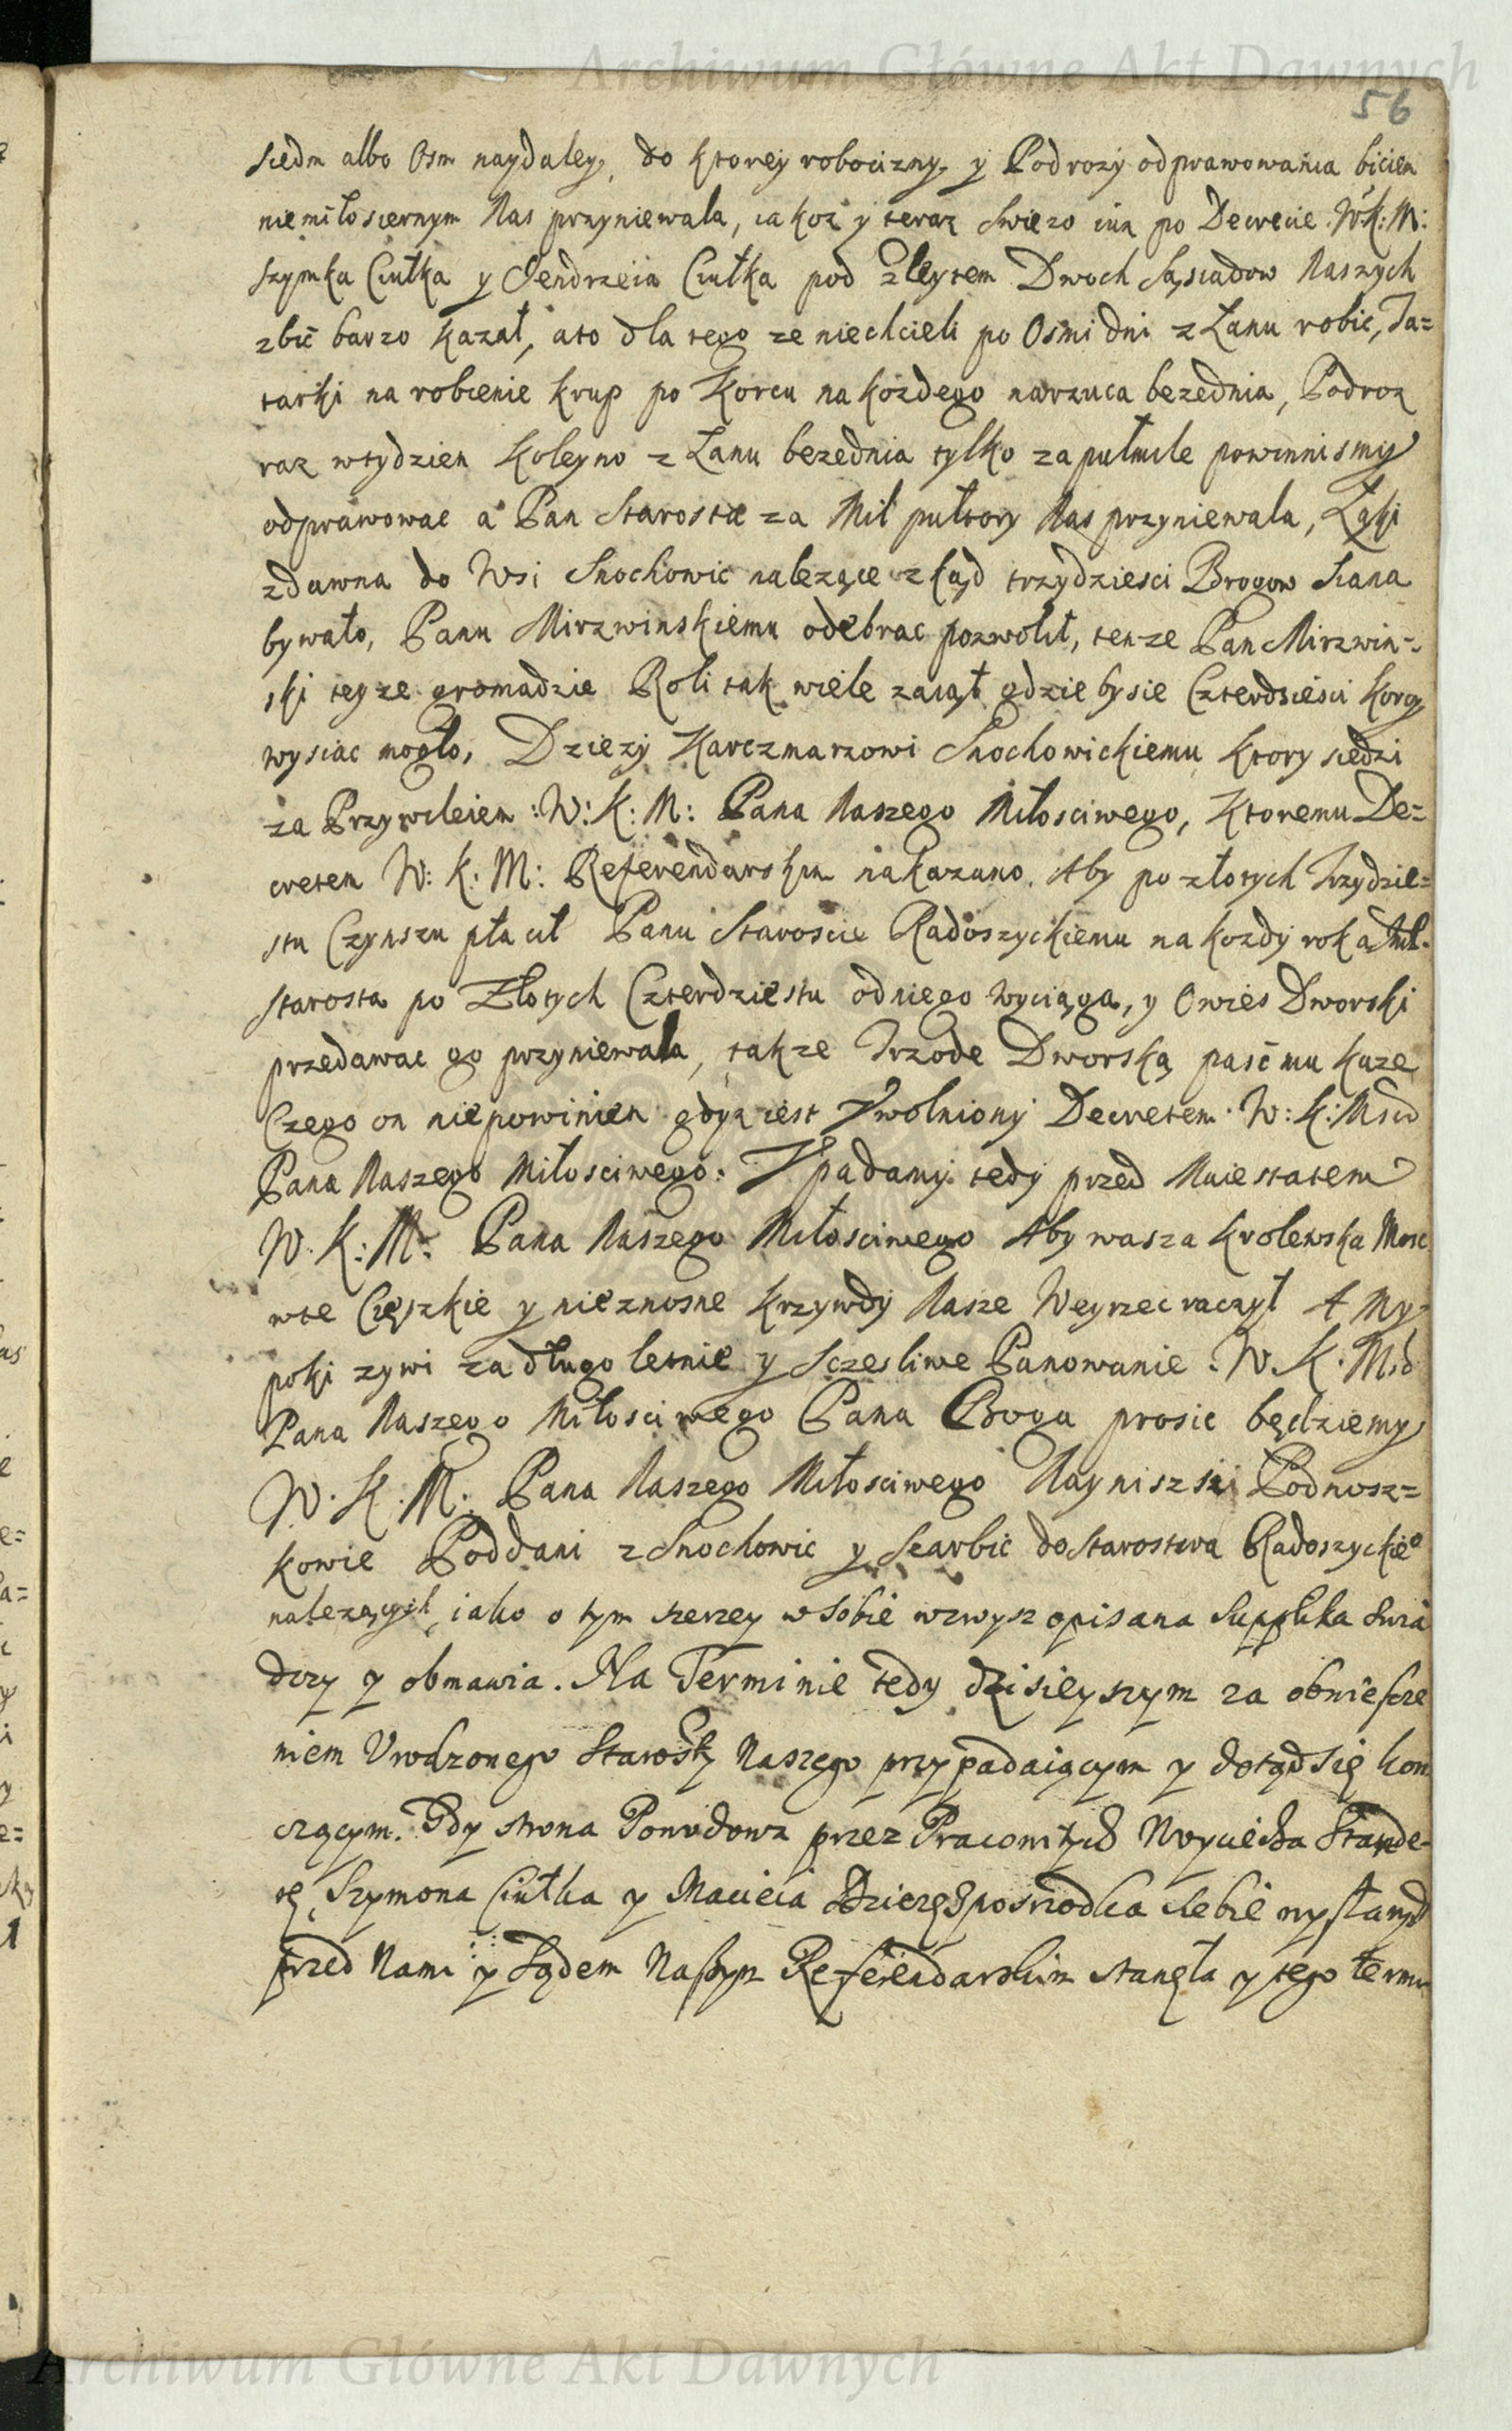 Archiwum Główne Akt Dawnych
56
siedm albo Osm naydaley, do ktorey robocizny y Podrozy odprawowania biciem
niemiłosiernym Nas przyniewala, iakoż y teraz swiezo iuz po Decrecie W:K:M:
Szymka Ciułka y Jendrzeia Ciułka pod zleytem Dwoch Sąsiadow Naszych
zbić barzo kazał, a to dla tego ze niechcieli po Osmi dni z Łanu robic, Ta=
tarki na robienie krup po Korcu na kozdego narzuca bezednia, Podroz
raz wtydzien koleyno z Łanu bezednia tylko za pułmile powinnismy
odprawowac a Pan Starosta za Mil pułtory Nas przyniewala, Łąki
zdawna do Wsi Snochowic nalezące zkąd trzydziesci Brogow Siana
bywało, Panu Mirzwinskiemu odebrac pozwolił, tenze Pan Mirzwin=
ski teyze gromadzie Roli tak wiele zaiął gdzie by sie Czterdziesci korcy
wysiac mogło, Dziezy Karczmarzowi Snochowickiemu ktory siedzi
za Przywileiem :W:K:M: Pana Naszego Miłosciwego, ktoremu De=
cretem W:K:M: Referendarskim nakazano. Aby po złotych Trzydzie=
stu Czynszu płacił Panu Staroscie Radoszyckiemu na kozdy rok a
Starosta po Złotych Czterdziestu odniego wyciąga, y Owies Dworski
przedawac go przyniewala, takze Trzode Dworską paść mu kaze
Czego on niepowinien gdyz iest Vwolniony Decretem W:K:Msci
Pana Naszego Miłosciwego: Vpadamy tedy przed Maiestatem
W.K:M: Pana Naszego Miłosciwego Aby wasza krolewska Mosc
wte Cięszkie y nieznosne krzywdy Nasze Weyrzec raczył A My
poki zywi za długo letnie y sczesliwe Panowanie :W.K.Msci
Pana Naszego Miłosciwego Pana Boga prosic będziemy
W.K.M. Pana Naszego Miłosciwego Nayniszszi Podnosz=
kowie Poddani z Snochowic y Scarbic do Starostwa Radoszyckieo
nalezących, iako o tym szerzey w sobie wzwysz opisana Supplika swia
dczy y obmawia. Na Terminie tedy dzisieyszym za obniescze
niem Vrodzonego Starosty Naszego przypadaiącym y dotąd się kon
czącym. Gdy strona Powodowa przez Pracowitych Woyciecha
rę, Szymona Ciułka y Macieia posrzodka siebie wysłanych
przed Nami y Sądem Naszym Referendarskim stanęła y tego termi
Archiwum Główne Akt Dawnych